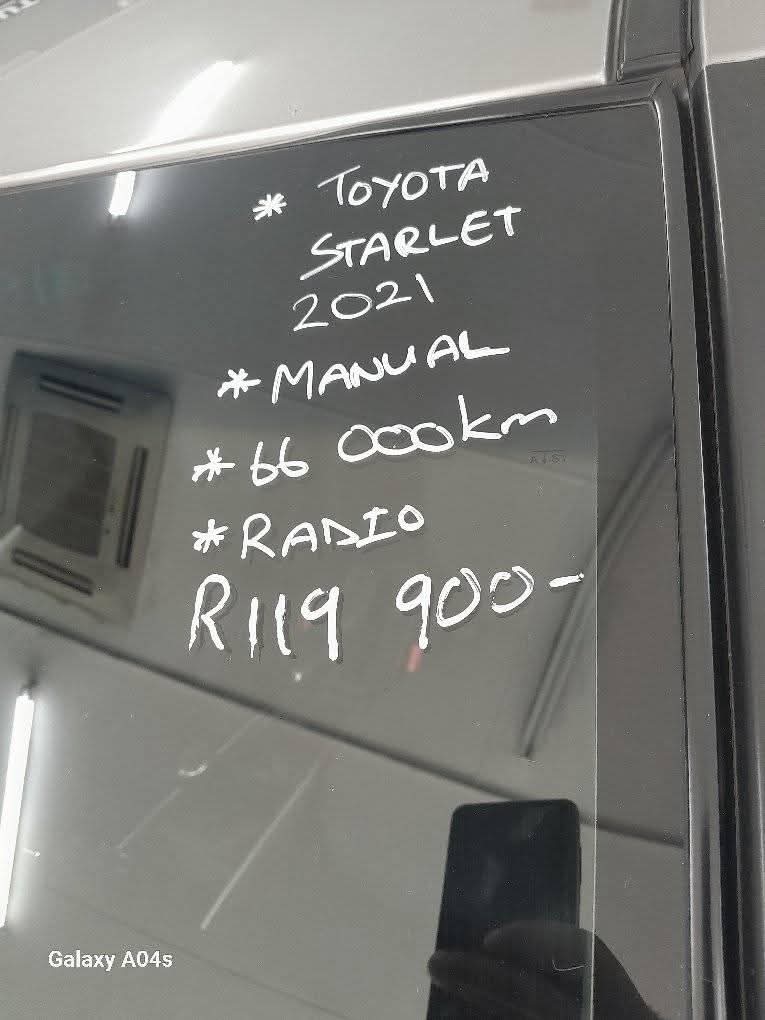 * TOYOTA
STARLET
2021
* MANUAL
* 66 000km
* RADIO
R119 900-
Galaxy A04s